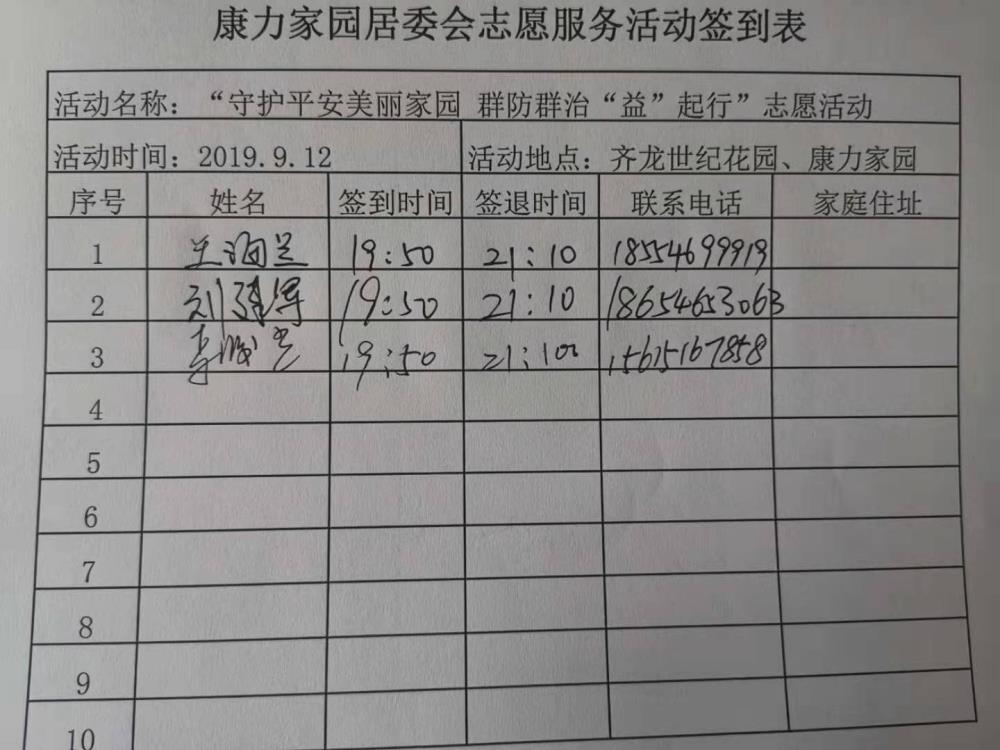 康力家园居委会志愿服务活动签到表
活动名称：“守护平安美丽家园 群防群治“益”起行”志愿活动
活动时间：2019.9.12 活动地点：齐龙世纪花园、康力家园
序号 姓名 签到时间 签退时间 联系电话 家庭住址
1 19:50 21:10 18554699919
2 19:50 21:10 18654653063
3 19:50 21:10 15675167858
4
5
6
7
8
9
10